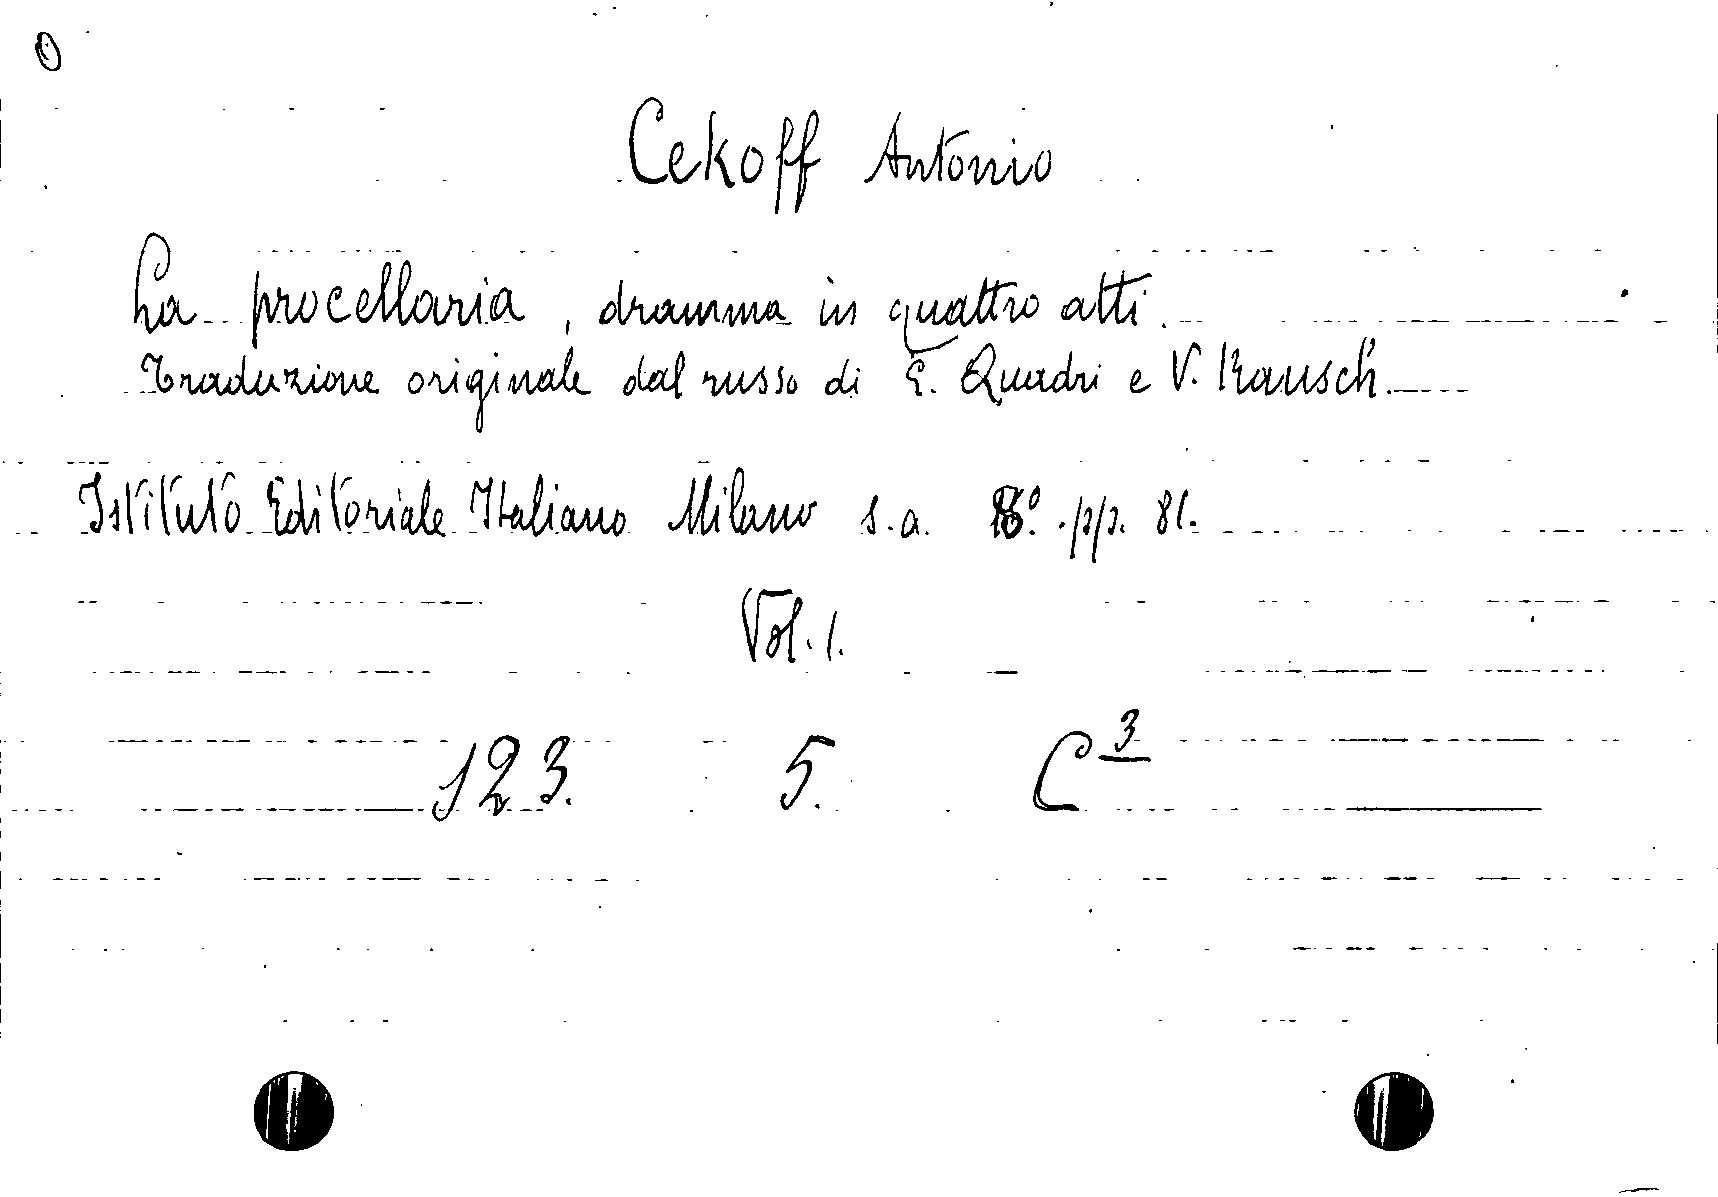 Cekoff Antonio
La procellaria, dramma in quattro atti.
Traduzione originale dal russo di E. Quadri e V. Rausch.
Istituto Editoriale Italiano Milano s.a. 16°. pp. 81.
Vol. 1.
123. 5. C 3